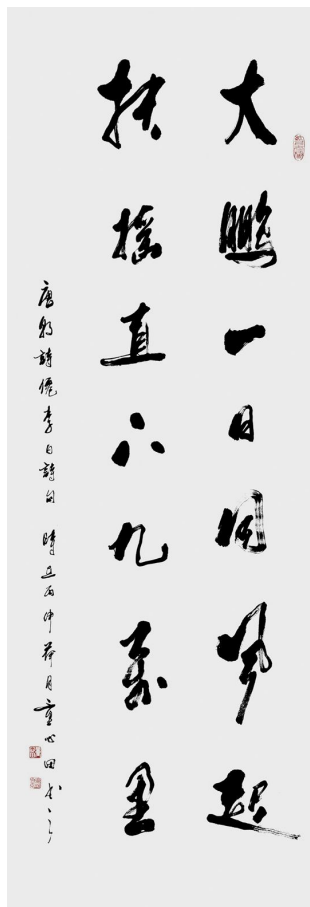 大鵬一日同風起
扶搖直上九萬里
唐朝詩僊李白詩句 時在丙申荷月童心田书